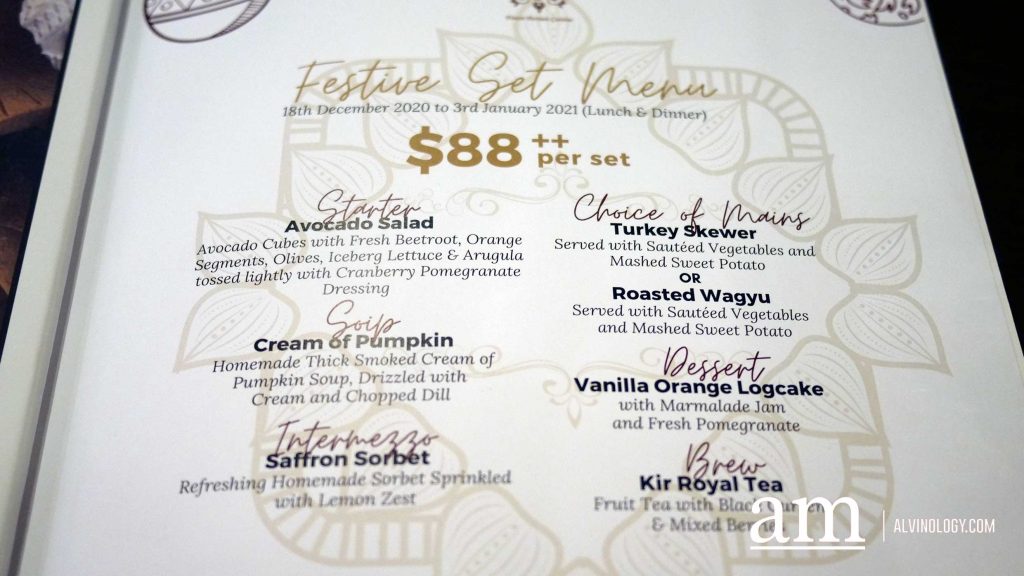 Festive Set Menu
18th December 2020 to 3rd January 2021 (Lunch & Dinner)
$88++ per set
Starter
Avocado Salad
Avocado Cubes with Fresh Beetroot, Orange
Segments, Olives, Iceberg Lettuce & Arugula
tossed lightly with Cranberry Pomegranate
Dressing
Soip
Cream of Pumpkin
Homemade Thick Smoked Cream of
Pumpkin Soup, Drizzled with
Cream and Chopped Dill
Intermezzo
Saffron Sorbet
Refreshing Homemade Sorbet Sprinkled
with Lemon Zest
Choice of Mains
Turkey Skewer
Served with Sautéed Vegetables and
Mashed Sweet Potato
OR
Roasted Wagyu
Served with Sautéed Vegetables
and Mashed Sweet Potato
Dessert
Vanilla Orange Logcake
with Marmalade Jam
and Fresh Pomegranate
Brew
Kir Royal Tea
Fruit Tea with Black
& Mixed Berries
am
ALVINOLOGY.COM